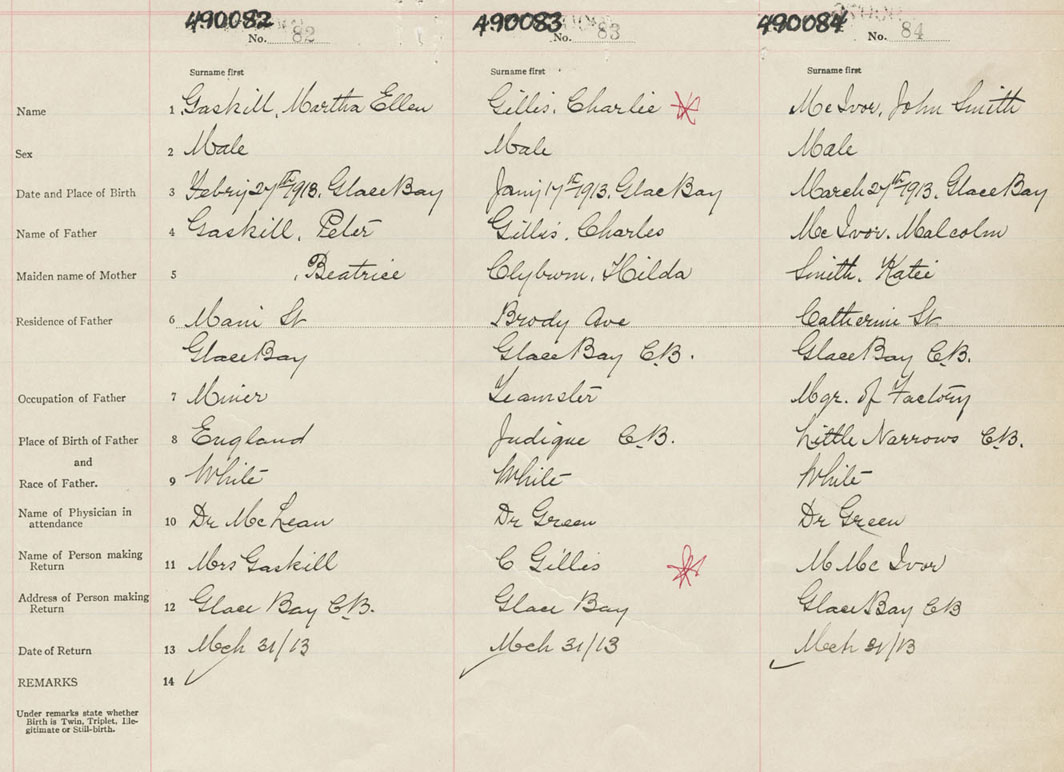 490082 490083 490084
No. 82 No. 83 No. 84
Surname first Surname first Surname first
Name 1 Gaskill, Martha Ellen Gillis, Charlie Mc Ivor, John Smith
Sex 2 Male Male Male
Date and Place of Birth 3 Febry 27th 1913. Glace Bay Jany 17th 1913. Glac Bay March 27th 1913. Glace Bay
Name of Father 4 Gaskill, Peter Gillis, Charles Mc Ivor. Malcolm
Maiden name of Mother 5 , Beatrice Hilda Smith, Katie
Residence of Father 6 Main St Brody Ave Catherine St
Glace Bay Glace Bay C.B. Glace Bay C.B.
Occupation of Father 7 Miner Teamster Mgr. of Factory
Place of Birth of Father 8 England Judique C.B. Little Narrows C.B.
and
Race of Father. 9 White White White
Name of Physician in
attendance 10 Dr McLean Dr Green Dr Green
Name of Person making
Return 11 Mrs Gaskill C Gillis M Mc Ivor
Address of Person making
Return 12 Glace Bay C.B. Glace Bay Glace Bay CB
Date of Return 13 Mch 31/13 Mch 31/13 Mch 31/13
REMARKS 14
Under remarks state whether
Birth is Twin, Triplet, Ille-
gitimate or Still-birth.